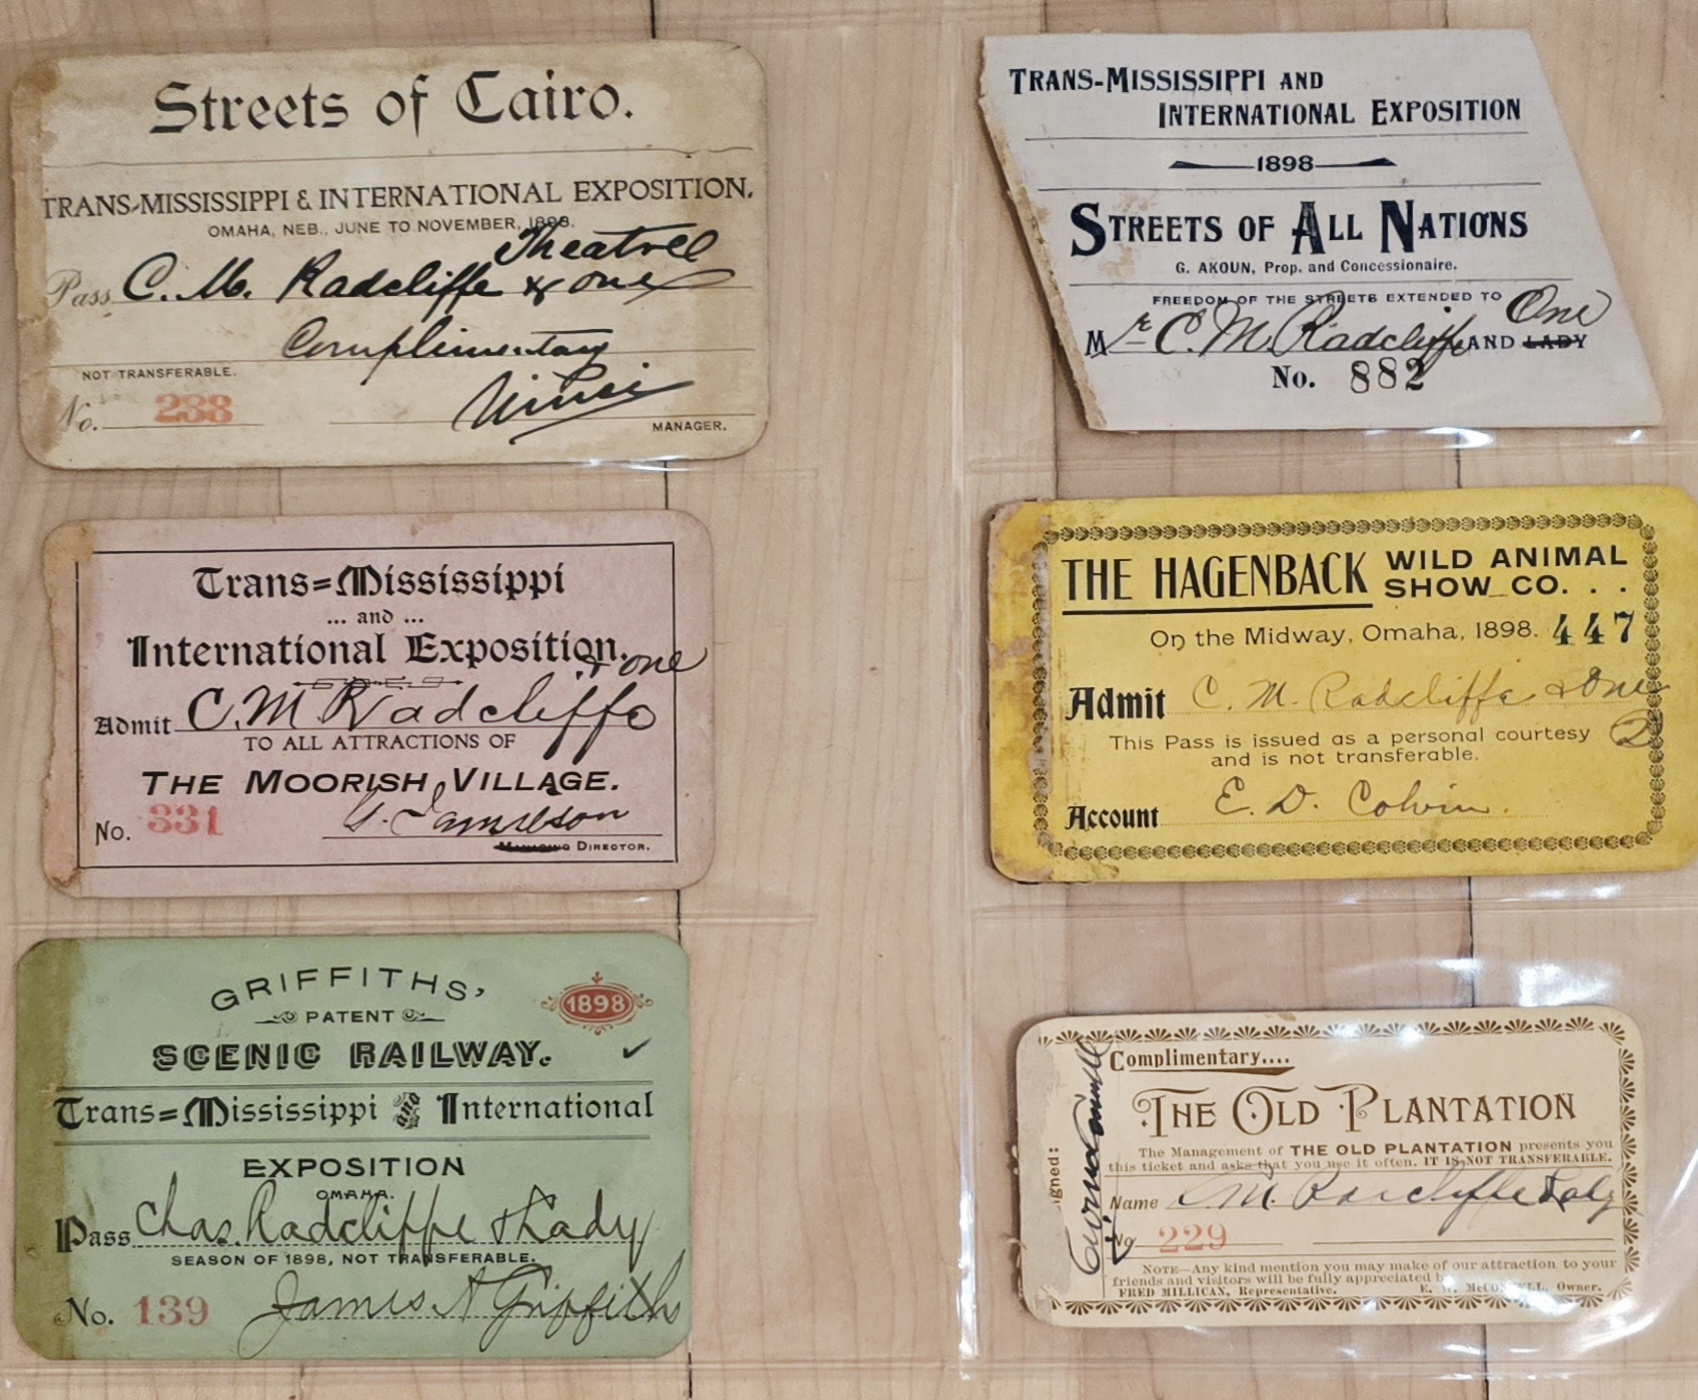 Streets of Cairo.
TRANS-MISSISSIPPI & INTERNATIONAL EXPOSITION.
OMAHA, NEB., JUNE TO NOVEMBER, 1898.
Theatree
Pass C. M. Radcliffe & one
Complimentary
NOT TRANSFERABLE.
No. 238
MANAGER.
TRANS-MISSISSIPPI AND
INTERNATIONAL EXPOSITION
1898
STREETS OF ALL NATIONS
G. AKOUN, Prop. and Concessionaire.
FREEDOM OF THE STREETS EXTENDED TO One
Mr C. M. Radcliffe AND LADY
No. 882
Trans=Mississippi
... and ...
International Exposition.
& one
Admit C. M Radcliffe
TO ALL ATTRACTIONS OF
THE MOORISH VILLAGE.
No. 331 G. Jamieson
MANAGING DIRECTOR.
THE HAGENBACK WILD ANIMAL
SHOW CO. . .
On the Midway, Omaha, 1898. 447
Admit C. M. Radcliffe & One
This Pass is issued as a personal courtesy 2
and is not transferable.
Account E. D. Colvin.
GRIFFITHS'
PATENT
1898
SCENIC RAILWAY.
Trans=Mississippi and International
EXPOSITION
OMAHA.
Pass Chas. Radcliffe & Lady
SEASON OF 1898, NOT TRANSFERABLE.
No. 139 James A Griffiths
Complimentary....
THE OLD PLANTATION
The Management of THE OLD PLANTATION presents you
this ticket and asks that you use it often. IT IS NOT TRANSFERABLE.
Name C. M. Radcliffe & Lady
No 229
NOTE—Any kind mention you may make of our attraction to your
friends and visitors will be fully appreciated by
FRED MILLICAN, Representative. E. W. McCONNELL, Owner.